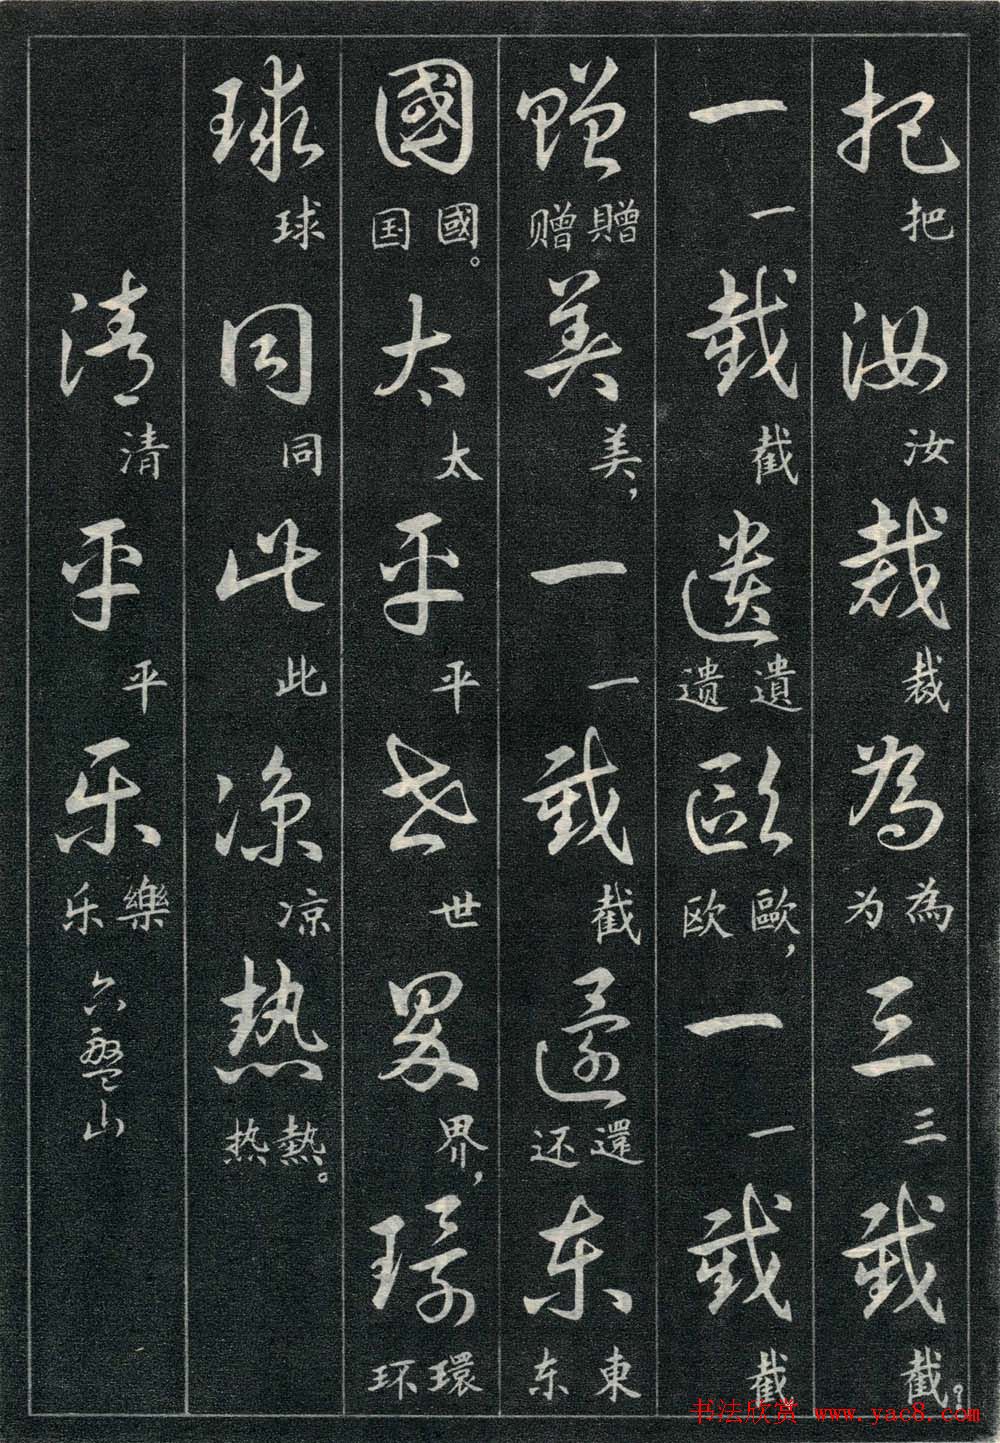 把把汝汝裁裁為為为三三截截？
一一截截遺遺遗歐歐，欧一一截截
贈贈赠美美，一一截截還還还东東东
國國。国太太平平世世界界，環環环
球球同同此此凉凉热熱。热
清清平平乐樂乐六盤山
书法欣赏 www.yac8.com